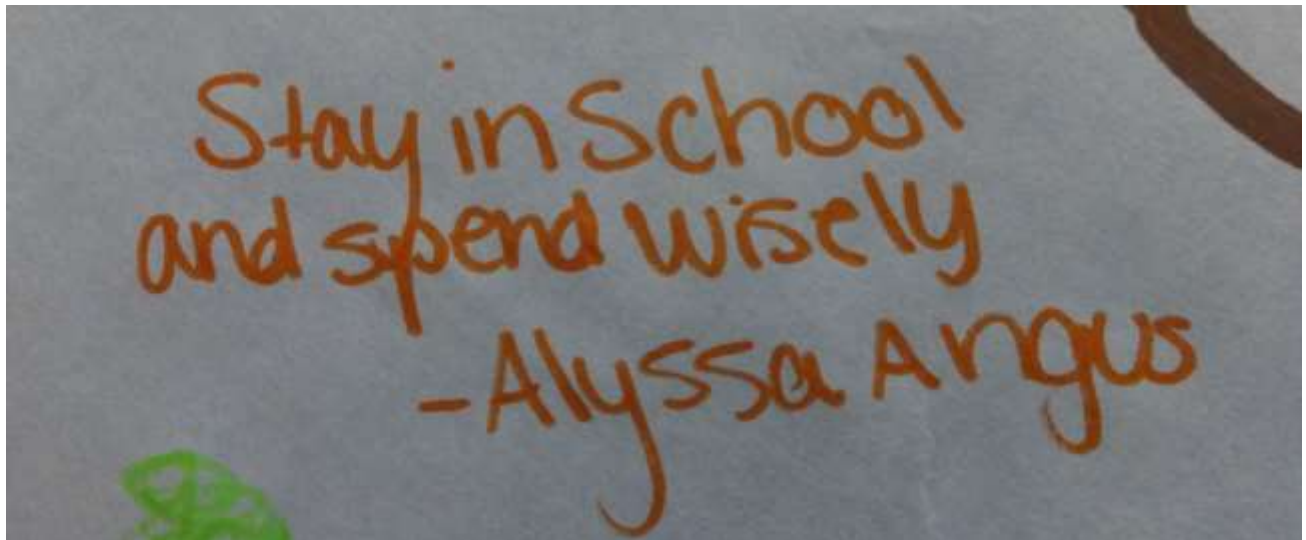 Stay in School
and spend wisely
-Alyssa Angus